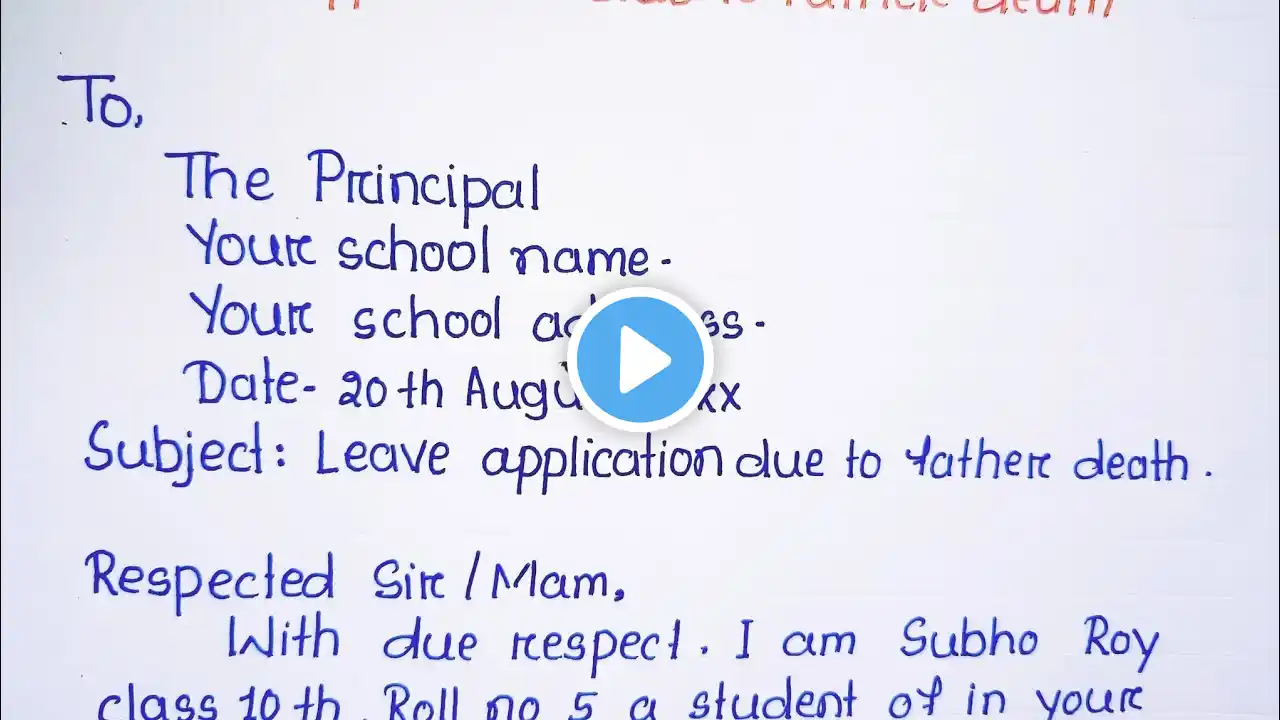 due to Father death
To,
The Principal
Your school name.
Your school address.
Date- 20th August xx
Subject: Leave application due to father death.
Respected Sir/Mam,
With due respect. I am Subho Roy
class 10th, Roll no 5 a student of in your